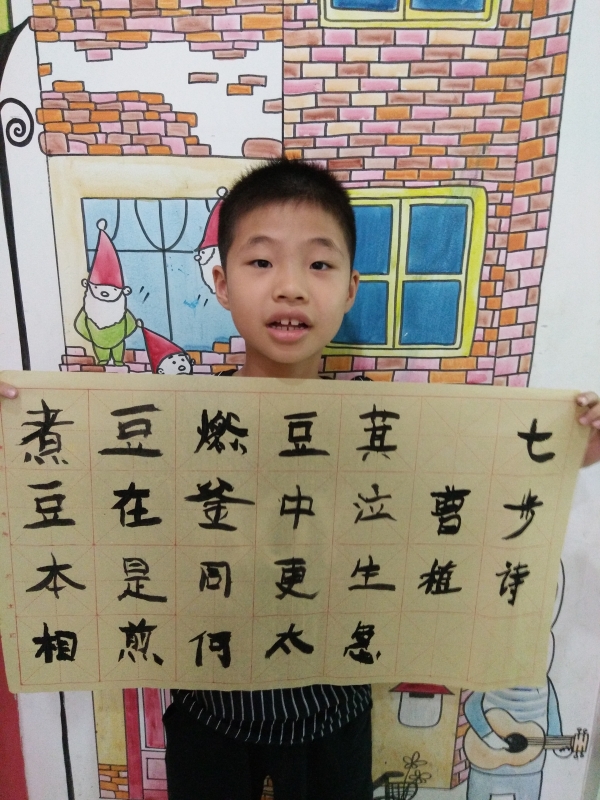 七步诗
曹植
煮豆燃豆萁
豆在釜中泣
本是同更生
相煎何太急